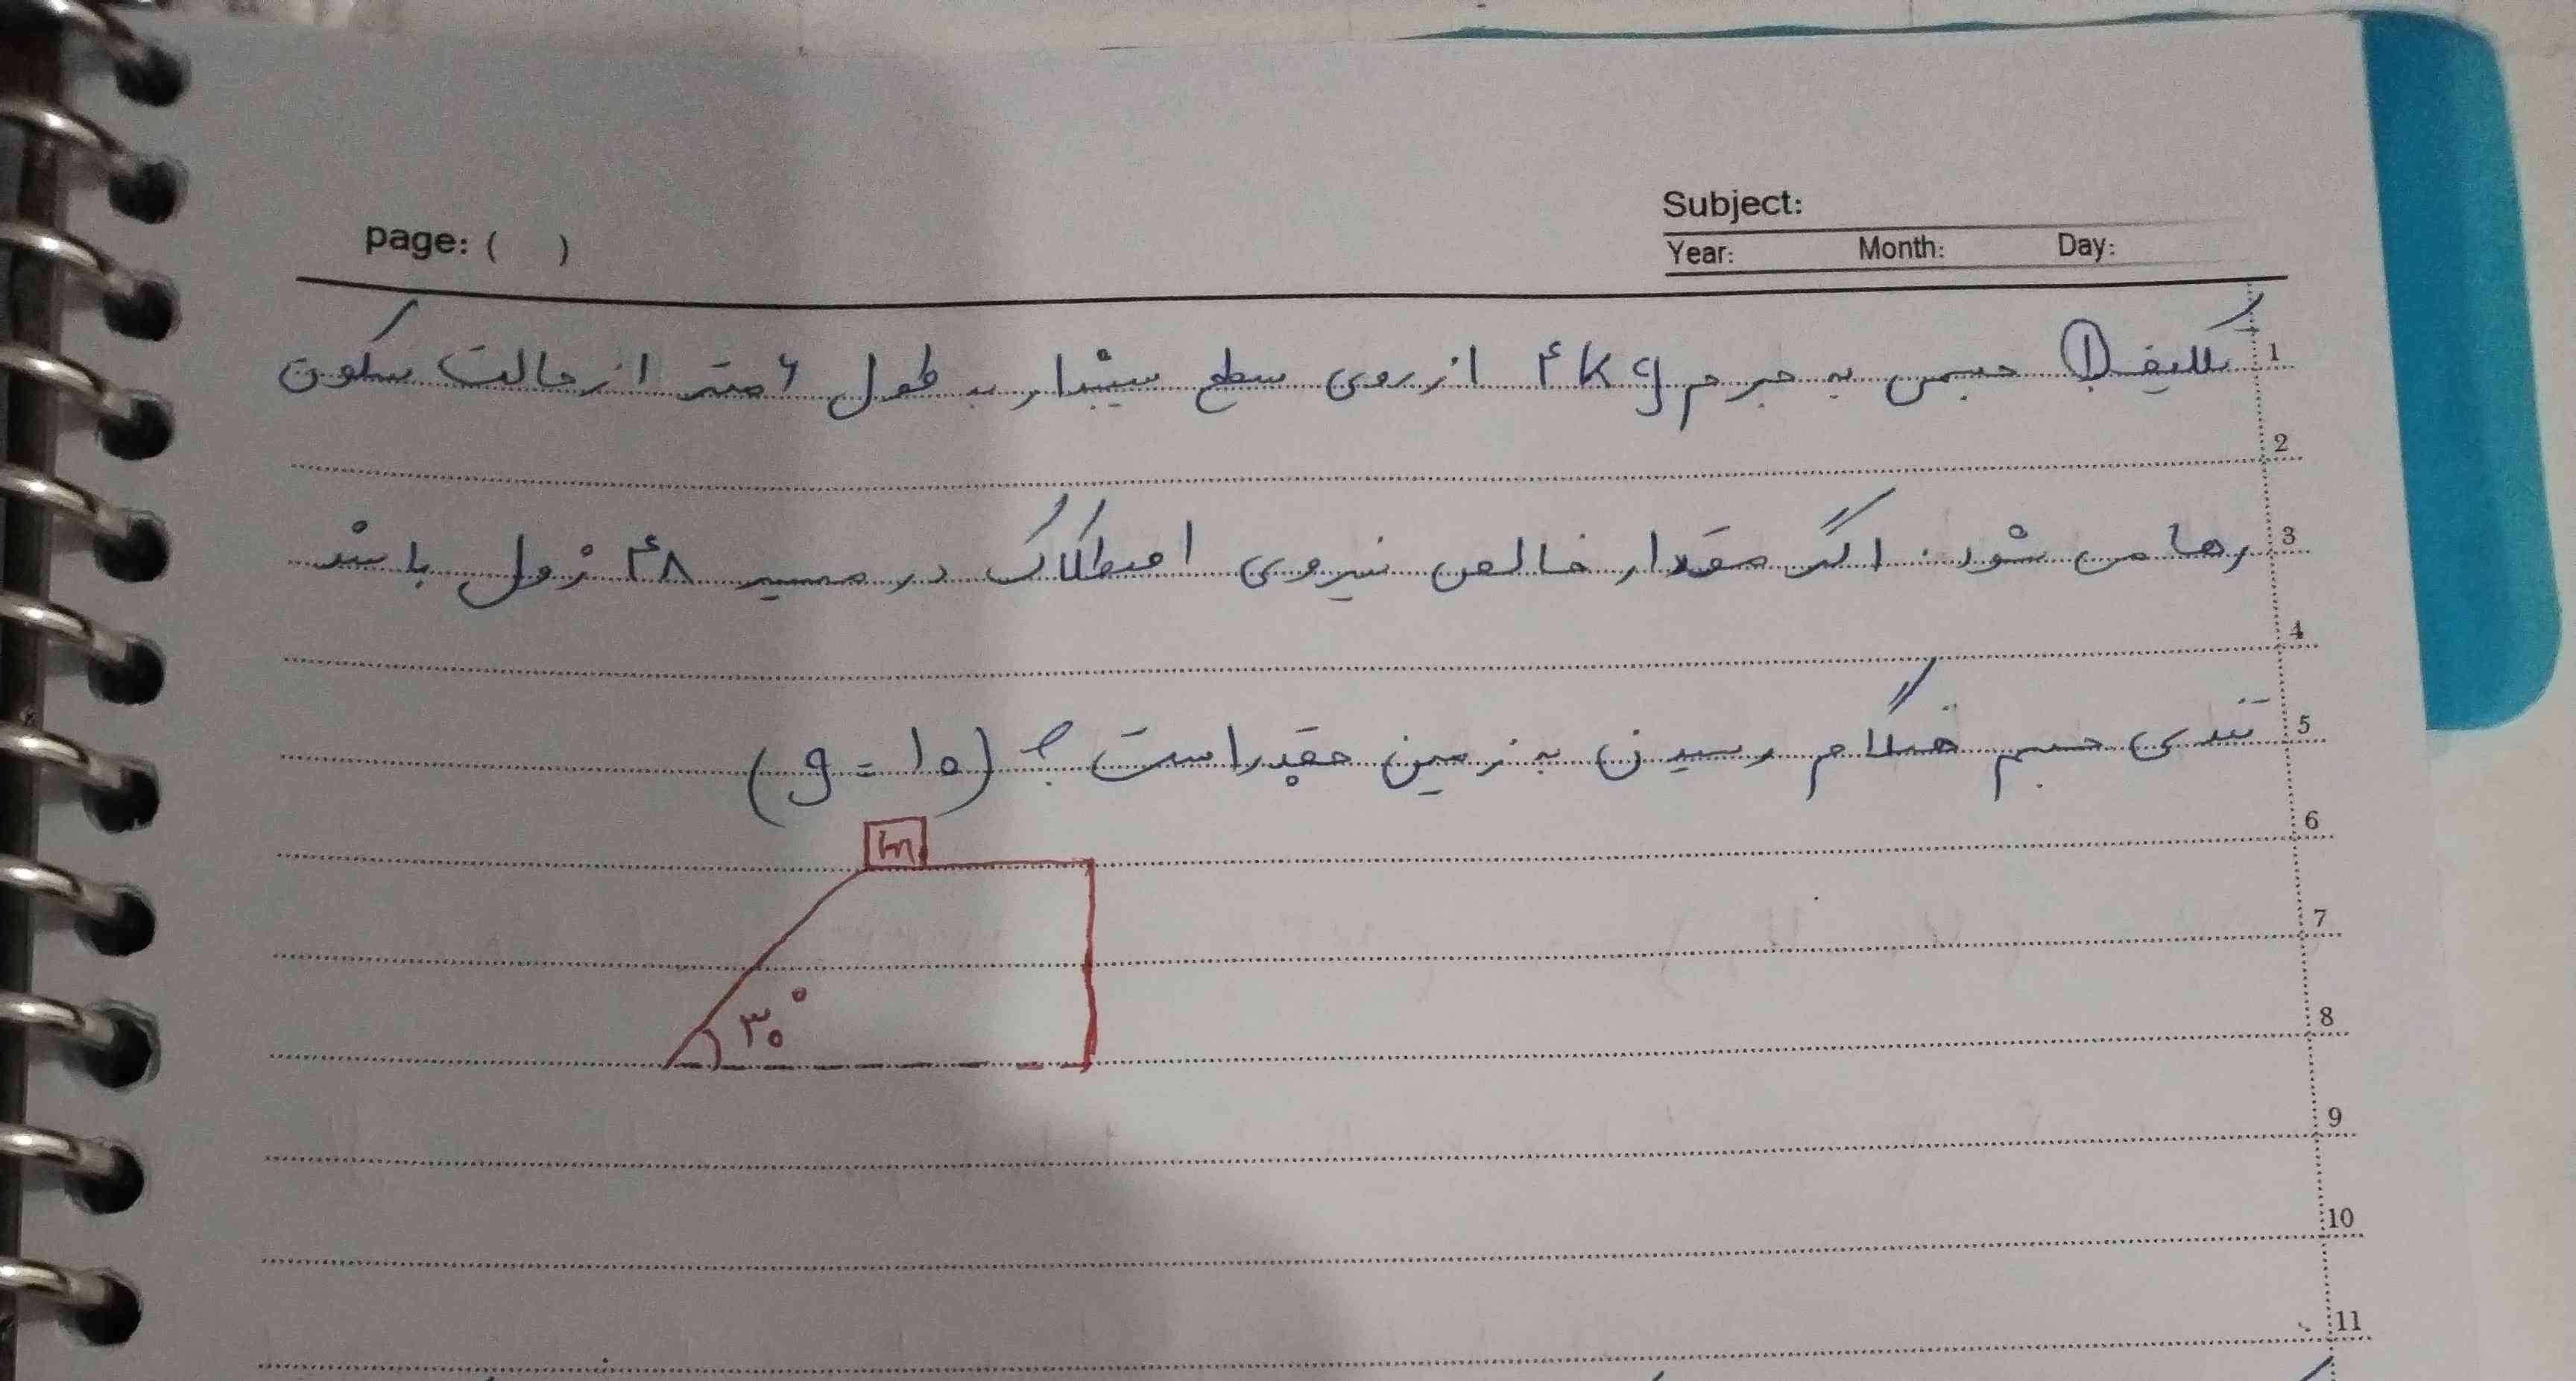 Subject:
page: ( )
Year: Month: Day:
تکلیف ① جسمی به جرم ۴Kg از روی سطح شیبدار به طول ۶ متر از حالت سکون
رها می شود. اگر مقدار خالص نیروی اصطکاک در مسیر ۴۸ ژول باشد
تندی جسم هنگام رسیدن به زمین چقدر است؟ (g=۱۰)
m
۳۰°
1
2
3
4
5
6
7
8
9
10
11